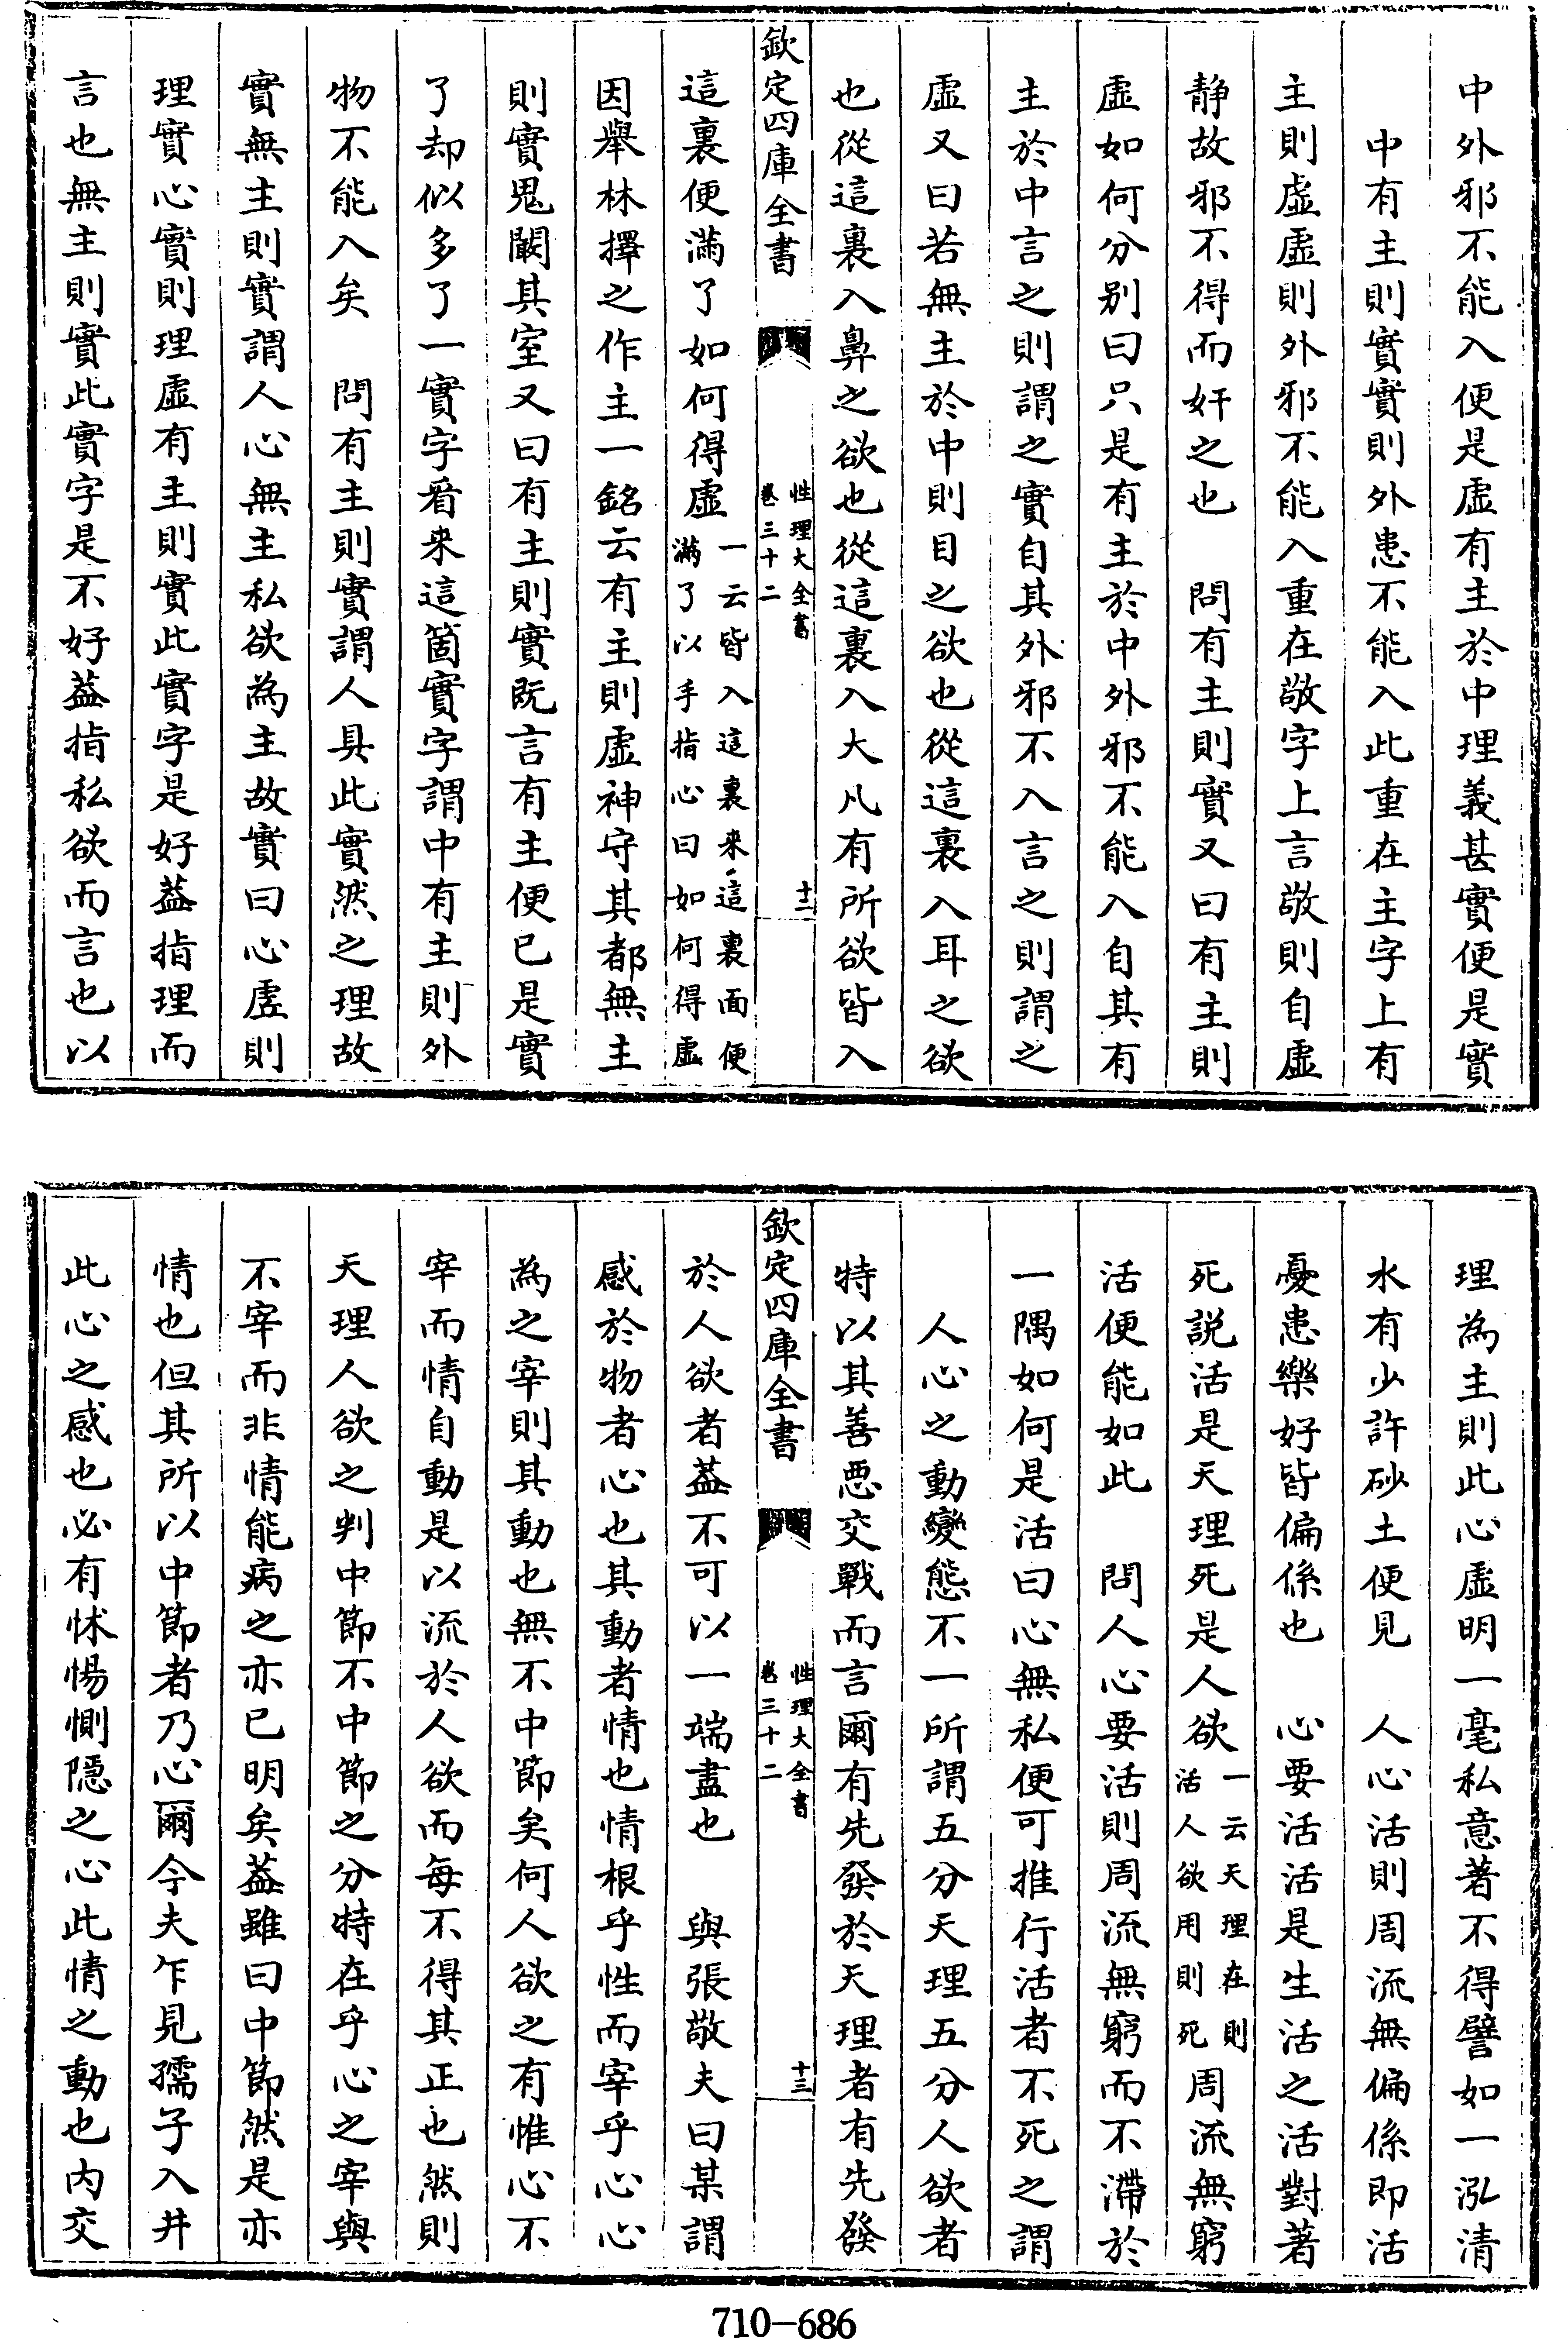 中外邪不能入便是虛有主於中理義甚實便是實
中有主則實實則外患不能入此重在主字上有
主則虛虛則外邪不能入重在敬字上言敬則自虛
静故邪不得而奸之也　問有主則實又曰有主則
虛如何分别曰只是有主於中外邪不能入自其有
主於中言之則謂之實自其外邪不入言之則謂之
虛又曰若無主於中則目之欲也從這裏入耳之欲
也從這裏入鼻之欲也從這裏入大凡有所欲皆入
欽定四庫全書
性理大全書
卷三十二
十二
這裏便滿了如何得虛一云皆入這裏来這裏面便滿了以手指心曰如何得虛
因舉林擇之作主一銘云有主則虛神守其都無主
則實鬼闞其室又曰有主則實既言有主便已是實
了却似多了一實字看来這箇實字謂中有主則外
物不能入矣　問有主則實謂人具此實然之理故
實無主則實謂人心無主私欲為主故實曰心虛則
理實心實則理虛有主則實此實字是好葢指理而
言也無主則實此實字是不好葢指私欲而言也以
理為主則此心虛明一毫私意著不得譬如一泓清
水有少許砂土便見　人心活則周流無偏係即活
憂患樂好皆偏係也　心要活活是生活之活對著
死説活是天理死是人欲一云天理在則活人欲用則死周流無窮
活便能如此　問人心要活則周流無窮而不滯於
一隅如何是活曰心無私便可推行活者不死之謂
人心之動變態不一所謂五分天理五分人欲者
特以其善惡交戰而言爾有先發於天理者有先發
欽定四庫全書
性理大全書
卷三十二
十三
於人欲者葢不可以一端盡也　與張敬夫曰某謂
感於物者心也其動者情也情根乎性而宰乎心心
為之宰則其動也無不中節矣何人欲之有惟心不
宰而情自動是以流於人欲而每不得其正也然則
天理人欲之判中節不中節之分特在乎心之宰與
不宰而非情能病之亦已明矣葢雖曰中節然是亦
情也但其所以中節者乃心爾今夫乍見孺子入井
此心之感也必有怵惕惻隠之心此情之動也内交
710-686